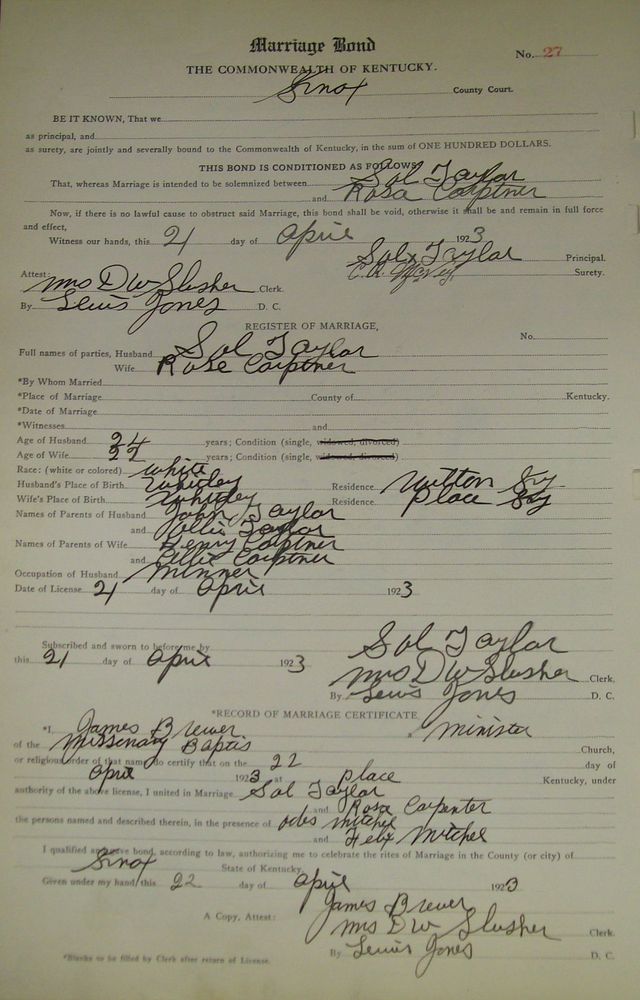 Marriage Bond
No. 27
THE COMMONWEALTH OF KENTUCKY.
Knox County Court.
BE IT KNOWN, That we
as principal, and
as surety, are jointly and severally bound to the Commonwealth of Kentucky, in the sum of ONE HUNDRED DOLLARS.
THIS BOND IS CONDITIONED AS FOLLOWS
That, whereas Marriage is intended to be solemnized between Sol Taylor
and Rosa Carptner
Now, if there is no lawful cause to obstruct said Marriage, this bond shall be void, otherwise it shall be and remain in full force
and effect,
Witness our hands, this 21 day of Aprie 1923
Sol x Taylor Principal.
C.R. Surety.
Attest: Mrs D W Slusher Clerk.
By Lewis Jones D. C.
REGISTER OF MARRIAGE,
No.
Full names of parties, Husband Sol Taylor
Wife Rose Carptner
*By Whom Married
*Place of Marriage County of Kentucky.
*Date of Marriage
*Witnesses and
Age of Husband 24 years; Condition (single, widowed, divorced)
Age of Wife years; Condition (single, widowed, divorced)
Race: (white or colored) White
Husband's Place of Birth Whitley Residence Wilton Ky
Wife's Place of Birth Whitley Residence Place Ky
Names of Parents of Husband John Taylor
and Taylor
Names of Parents of Wife Henry Carptner
and Carptner
Occupation of Husband Minner
Date of License 21 day of Aprie 1923
Subscribed and sworn to before me by Sol Taylor
this 21 day of Aprie 1923
Mrs D W Slusher Clerk.
By Lewis Jones D. C.
*RECORD OF MARRIAGE CERTIFICATE
*I, James Brewer a Minister
of the Missenary Baptis Church,
or religious order of that name, do certify that on the 22 day of
Aprie 1923 at Place Kentucky, under
authority of the above license, I united in Marriage Sol Taylor
and Rosa Carpenter
the persons named and described therein, in the presence of Mitchel
and Felix Mitchel
I qualified and gave bond, according to law, authorizing me to celebrate the rites of Marriage in the County (or city) of
Knox State of Kentucky.
Given under my hand this 22 day of Aprie 1923
James Brewer
A Copy, Attest: Mrs D W Slusher Clerk.
By Lewis Jones D. C.
*Blanks to be filled by Clerk after return of License.